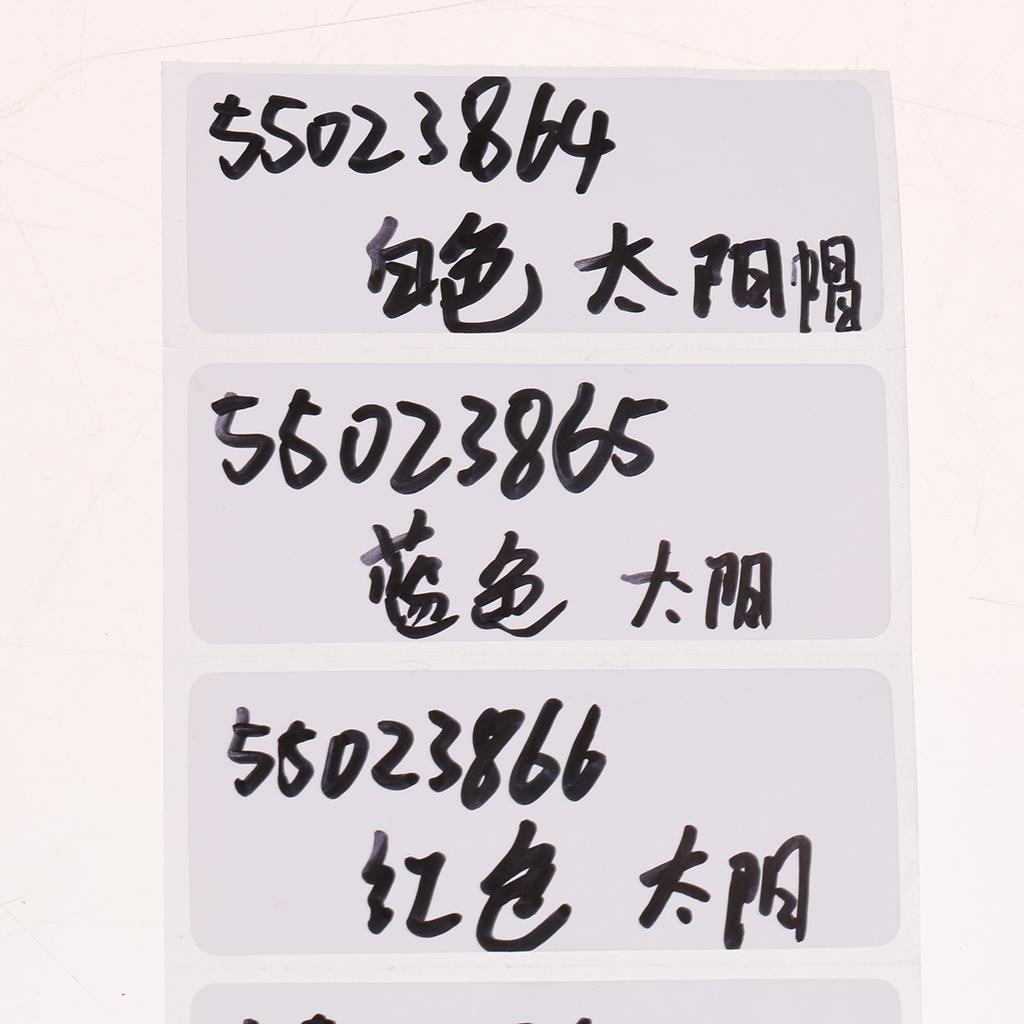 55023864
白色 太阳帽
55023865
蓝色 太阳
55023866
红色 太阳